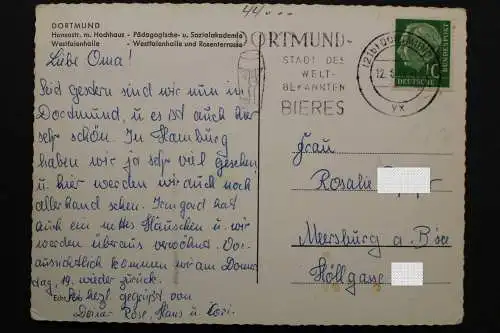 44...
DORTMUND
Hansastr. m. Hochhaus - Pädagogische- u. Sozialakademie
Westfalenhalle - Westfalenhalle und Rosenterrasse
Liebe Oma!
Seit gestern sind wir nun in
Dortmund, u es ist auch hier
sehr schön. In Hamburg
haben wir ja sehr viel gesehen
u. hier werden wir auch noch
allerhand sehen. Irmgard hat
auch ein nettes Häuschen u. wir
werden überaus verwöhnt. Vor-
aussichtlich kommen wir am Donners
tag, 19. wieder zurück.
herzl. gegrüßt von
Rose, Hans u.
DORTMUND-
STADT DES
WELT-
BEKANNTEN
BIERES
(21b) DORTMUND
12.
yx
DEUTSCHE
BUNDESPOST
10
Frau
Rosalie
Meersburg a. B'see
Höllgasse